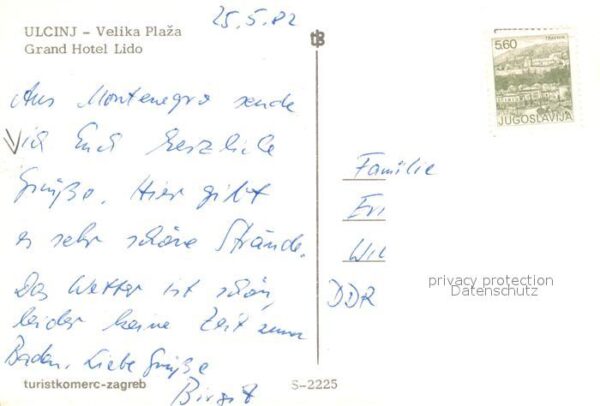 25.5.82
ULCINJ – Velika Plaža
Grand Hotel Lido
Aus Montenegro sende
ich Euch herzliche
Grüße. Hier gibt
es sehr schöne Strände.
Das Wetter ist schön,
leider keine Zeit zum
Baden. Liebe Grüße
Birgit
turistkomerc-zagreb
S-2225
5,60
TRAVNIK
JUGOSLAVIJA
Familie
Eri
Wil
DDR
privacy protection
Datenschutz